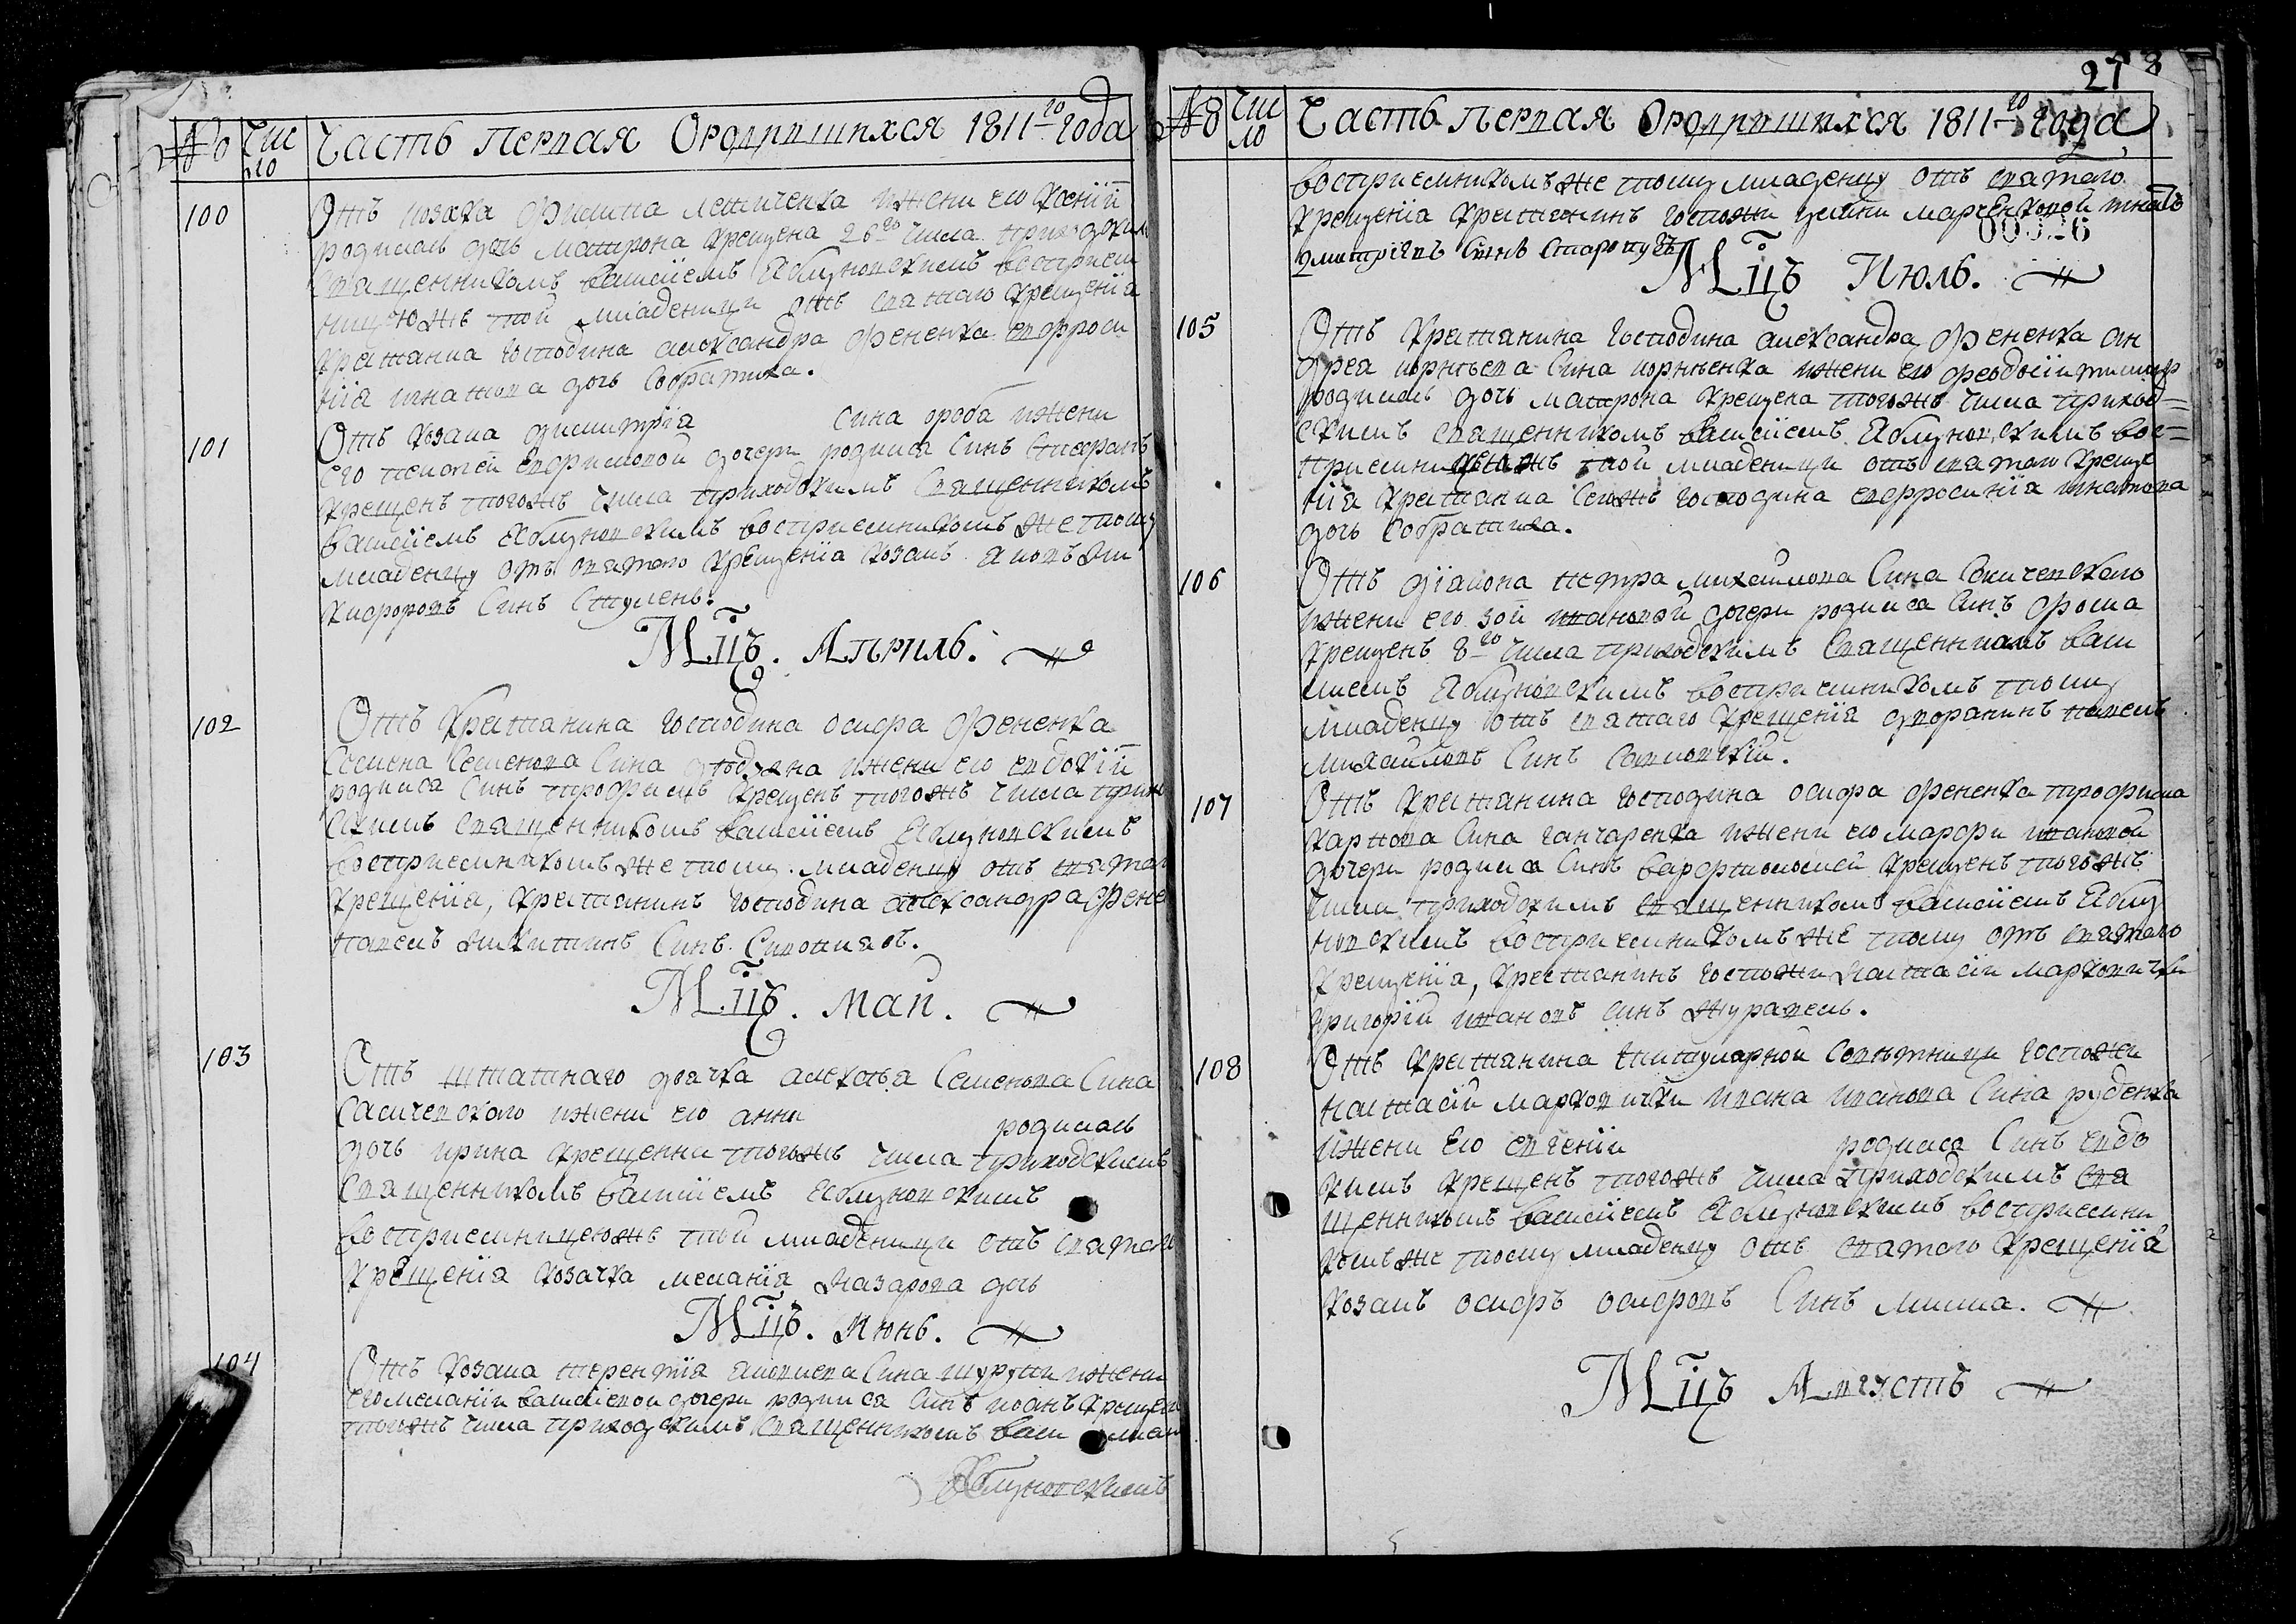 № Число Часть первая Ородившихся 1811го года
100 Отъ козака Филипа Летиченка ижени его Ксеніи
родилась дочь матрона крещена 26го числа приходским
Священникомъ Василіемъ Яблуновскимъ восприем
ницеюжъ той младеници отъ святаго крещенія
крестянка господина александра Фененка ефроси
нія игнатова дочь Собратиха.
101 Отъ козака димитрія сина гроба ижени
его пелагеи Ефримовой дочери родился Синъ Стефанъ
крещенъ тогожъ числа приходскимъ Священникомъ
Василіемъ Яблуновскимъ восприемникомъ же тому
младенцу отъ святаго крещенія козакъ Яковъ Ни
кифоровъ Синъ Стулень.
Мцъ. Априль.
102 Отъ Крестянина господина осифа Фененка
Семена Семенова Сина дтодуна ижени его евдокіи
родился Синъ трофимъ крещенъ тогожъ числа прихо
дскимъ священникомъ василіемъ Яблуновскимъ
восприемникомъ же тому младенцу отъ святаго
крещенія, крестянинъ господина александра Фене
павелъ никитинъ Синъ Сиротилъ.
Мцъ. Май.
103 Отъ штатнаго дячка алексѣя Семенова Сина
Самчевского ижени его анни родилась
дочь ирина крещенна тогожъ числа приходскимъ
Священникомъ Василіемъ Яблуновскимъ
восприемницеюжъ той младеници отъ святаго
крещенія козачка меланія Назарова дочь
Мцъ. Июнь.
104 Отъ козака терентія Яковлева Сина шурути ижени
его меланіи василіевой дочери родился Синъ иоанъ крещен
тогожъ числа приходскимъ священникомъ Васи лием
Яблуновскимъ
27
№ Число Часть первая Ородившихся 1811го года
восприемникомъ же тому младенцу отъ святаго
крещенія крестянинъ госпожи уляни марченковой игнатъ
дмитріевъ Синъ Старопудъ
Мцъ Июль.
105 Отъ Крестянина господина александра Фененка ан
дрея корнѣева Сина корнѣенка ижени его феодосіи тимоф
родилась дочь матрона крещена тогожъ числа приход=
скимъ священникомъ василіемъ Яблуновскимъ вос=
приемницеюжъ той младеници отъ святаго креще
нія крестянка Сегожъ господина ефросинія игнатова
дочь Собратиха.
106 Отъ діакона петра михайлова Сина Самчевского
ижени его зои ивановой дочери родился Синъ фома
крещенъ 8го числа приходскимъ Священникомъ васи
лиемъ Яблуновскимъ восприемникомъ тому
младенцу отъ святаго крещенія дворянинъ павелъ
михайловъ Синъ
107 Отъ Крестянина господина осифа Фененка трофима
карпова Сина ганчаренка ижени его марфи ивановой
дочери родился Синъ варфоломей крещенъ тогожъ
числа приходскимъ священникомъ василіемъ Яблу
новскимъ восприемникомъ же тому отъ святаго
крещенія, Крестянинъ госпожи Настасіи марковички
григорій ивановъ синъ журавель.
108 Отъ Крестянина титулярной Совѣтници госпожи
настасіи марковички ивана иванова Сина руденка
ижени его евгеніи родился Синъ евдо
кимъ крещенъ тогожъ числа приходскимъ свя
щенникомъ василіемъ Яблуновскимъ восприемни
комъ же тому младенцу отъ святаго крещенія
козакъ осифъ осифовъ Синъ милка.
Мцъ Августъ